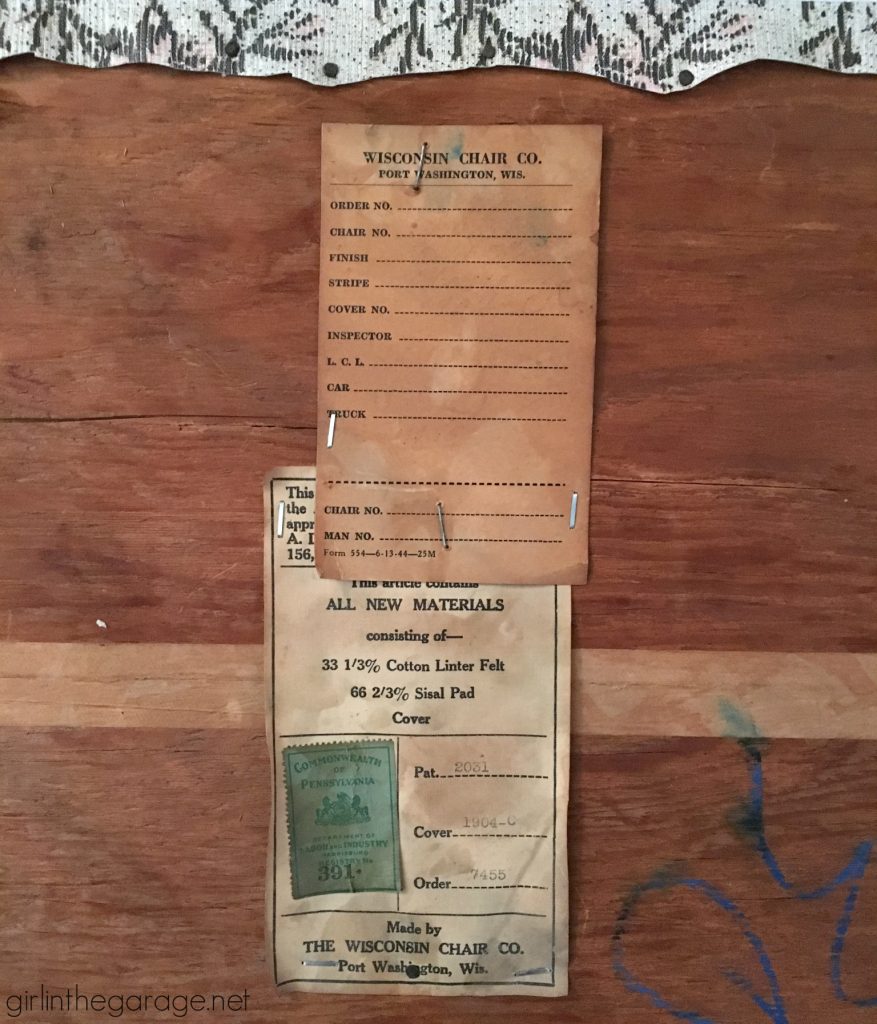 WISCONSIN CHAIR CO.
PORT WASHINGTON, WIS.
ORDER NO.
CHAIR NO.
FINISH
STRIPE
COVER NO.
INSPECTOR
L. C. L.
CAR
TRUCK
CHAIR NO.
MAN NO.
Form 554—6-13-44—25M
This
the
appr
A. D
156,
This article contains
ALL NEW MATERIALS
consisting of—
33 1/3% Cotton Linter Felt
66 2/3% Sisal Pad
Cover
COMMONWEALTH
OF
PENNSYLVANIA
DEPARTMENT OF
LABOR AND INDUSTRY
HARRISBURG
REGISTRY No
391
Pat. 2031
Cover 1904-C
Order 7455
Made by
THE WISCONSIN CHAIR CO.
Port Washington, Wis.
girlinthegarage.net